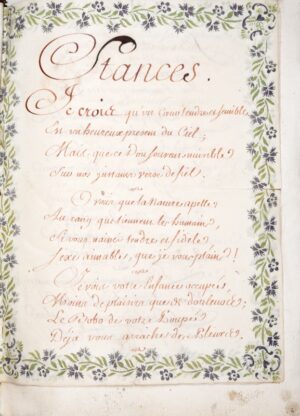 Stances.
Je crois qu'un Cœur tendre et sensible
Est un heureux présent du Ciel;
Mais, que ce Don souvent nuisible
Sur nos jours verse de fiel.
O vous que la Nature apelle
Au rang qui tiennent les humain,
Sexe aimables, que je vous plain!
Je vois votre Enfance occupée,
Moins de plaisirs que de douleurs;
Le Debo de votre Poupée
Déja vous arrache des Pleurs.